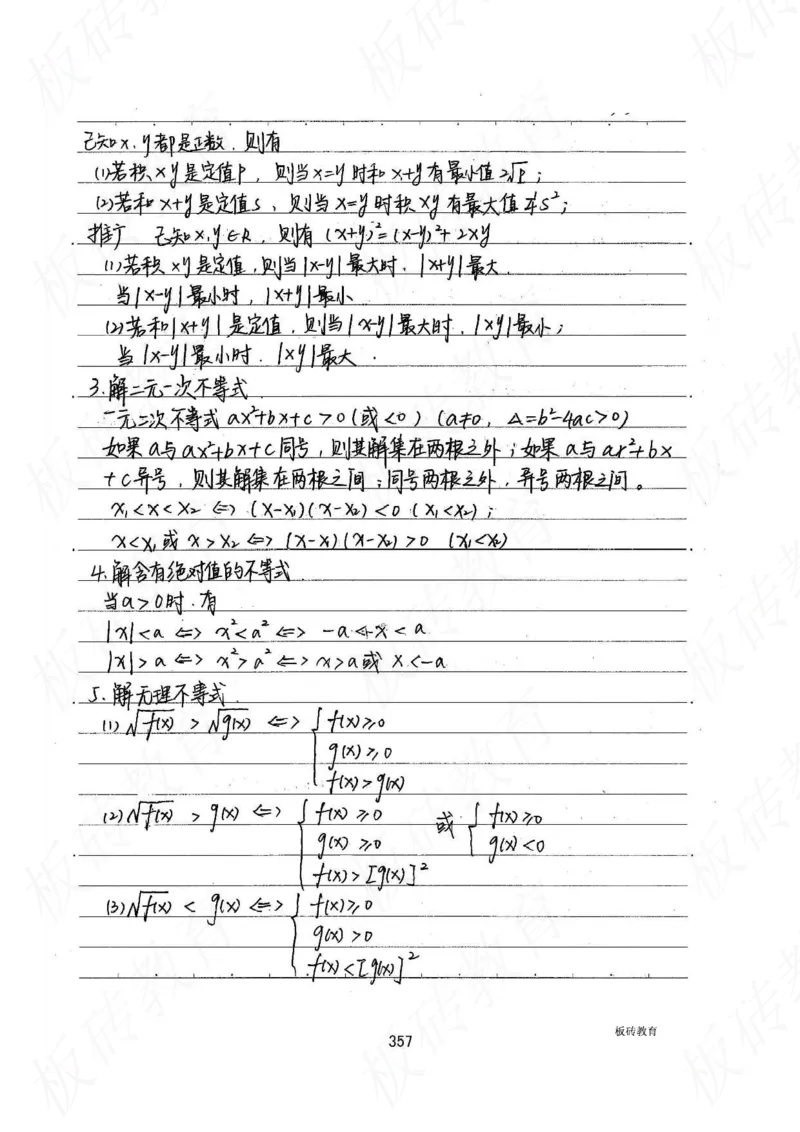 已知x,y都是正数,则有
(1)若积xy是定值p,则当x=y时和x+y有最小值2√p;
(2)若和x+y是定值s,则当x=y时积xy有最大值¼s²;
推广 已知x,y∈R,则有(x+y)²=(x-y)²+2xy
(1)若积xy是定值,则当|x-y|最大时,|x+y|最大.
当|x-y|最小时,|x+y|最小
(2)若和|x+y|是定值,则当|x-y|最大时,|xy|最小;
当|x-y|最小时.|xy|最大.
3.解二元一次不等式
一元二次不等式ax²+bx+c>0(或<0)(a≠0,△=b²-4ac>0)
如果a与ax²+bx+c同号,则其解集在两根之外;如果a与ax²+bx
+c异号,则其解集在两根之间;同号两根之外,异号两根之间。
x₁<x<x₂⇔(x-x₁)(x-x₂)<0(x₁<x₂);
x<x₁或x>x₂⇔(x-x₁)(x-x₂)>0 (x₁<x₂)
4.解含有绝对值的不等式
当a>0时.有
|x|<a⇔x²<a²⇔-a<x<a
|x|>a⇔x²>a²⇔x>a或x<-a
5.解无理不等式
(1)√f(x) > √g(x) ⇔ { f(x)≥0
g(x)≥0
f(x)>g(x)
(2)√f(x) > g(x) ⇔ { f(x)≥0 或 { f(x)≥0
g(x)≥0 g(x)<0
f(x)>[g(x)]²
(3)√f(x) < g(x) ⇔ { f(x)≥0
g(x)>0
f(x)<[g(x)]²
板砖教育
357